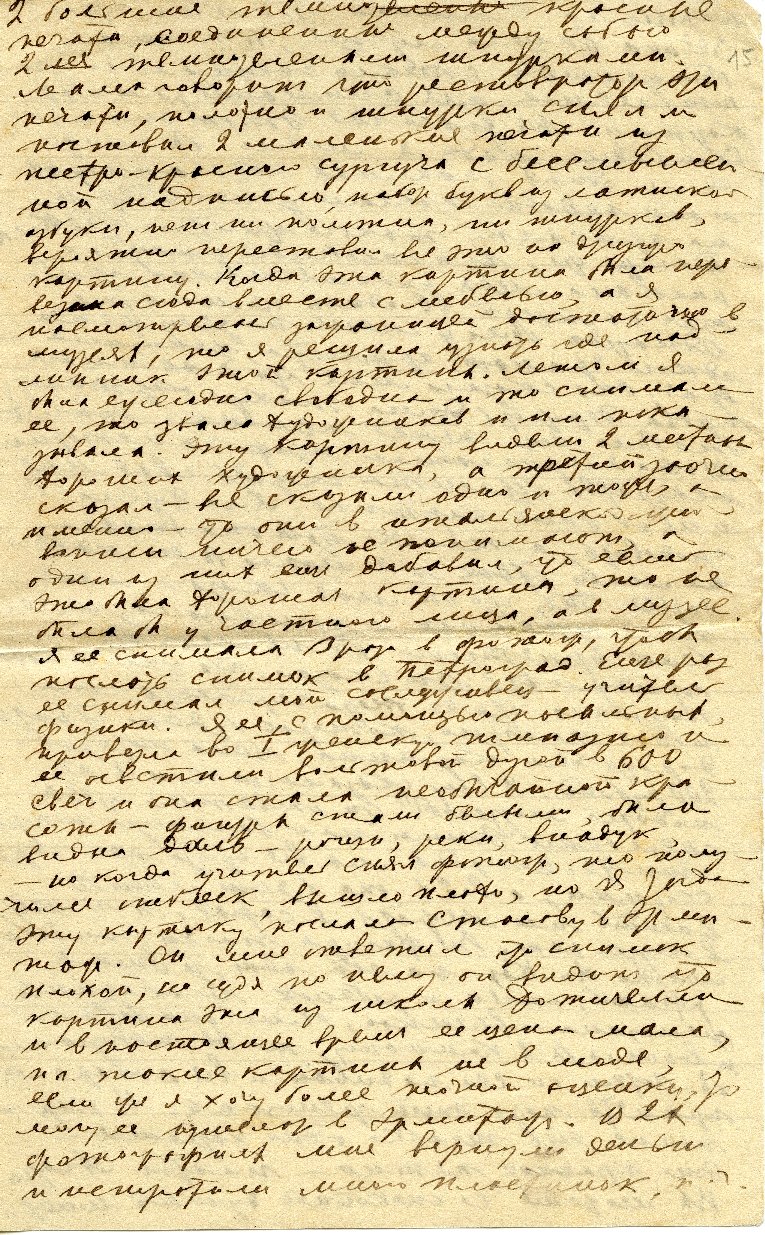 2 большие темнозеленые красные
печати, соединенные между собою
2 мя темнозелеными шнурками.
Мама говорит что реставратор эти
печати, полотно и шнурки снял и
поставил 2 маленькие печати из
пестро-красного сургуча с бессмыслен
ной надписью, набор букв из латинской
азбуки, нет ни полотна, ни шнурков,
вероятно переставил все это на другую
картину. Когда эта картина была пере-
везена сюда вместе с мебелью, а я
насмотрелась заграницей достаточно в
музеях, то я решила узнать где под-
линник этой картины. Летом я
была ежегодно свободна и то снимала
ее, то звала художников и им пока-
зывала. Эту картину видели 2 местных
хороших художника, а третий заочно
сказал – все сказали одно и тоже, а
именно – что они в итальянской живо
писи ничего не понимают, а
один из них еще добавил, что еслиб
это была хорошая картина, то не
была бы у частного лица, а в музее.
Я ее снимала 3 раза в фотогр, чтоб
послать снимок в Петроград. Еще раз
ее снимал мой сослуживец – учитель
физики. Я ее, с помощью посыльных,
привезла во I женскую гимназию и
ее осветили вольтовой дугой в 600
свеч и она стала необычайной кра-
соты – фигуры стали белыми, была
видна даль – рощи, реки, виадук,
– но когда учитель снял фотогр, то полу-
чился отблеск, вышло плохо, но я тогда
эту карточку послала Стасову в Эрми-
таж. Он мне ответил что снимок
плохой, но судя по нему он видит что
картина эта из школы Ботичелли
и в настоящее время ее цена мала,
п.ч. такие картины не в моде,
если же я хочу более точной оценки, то
могу ее прислать в Эрмитаж. В 2х
фотографиях мне вернули деньги
и испортили много пластинок, п.ч.
15